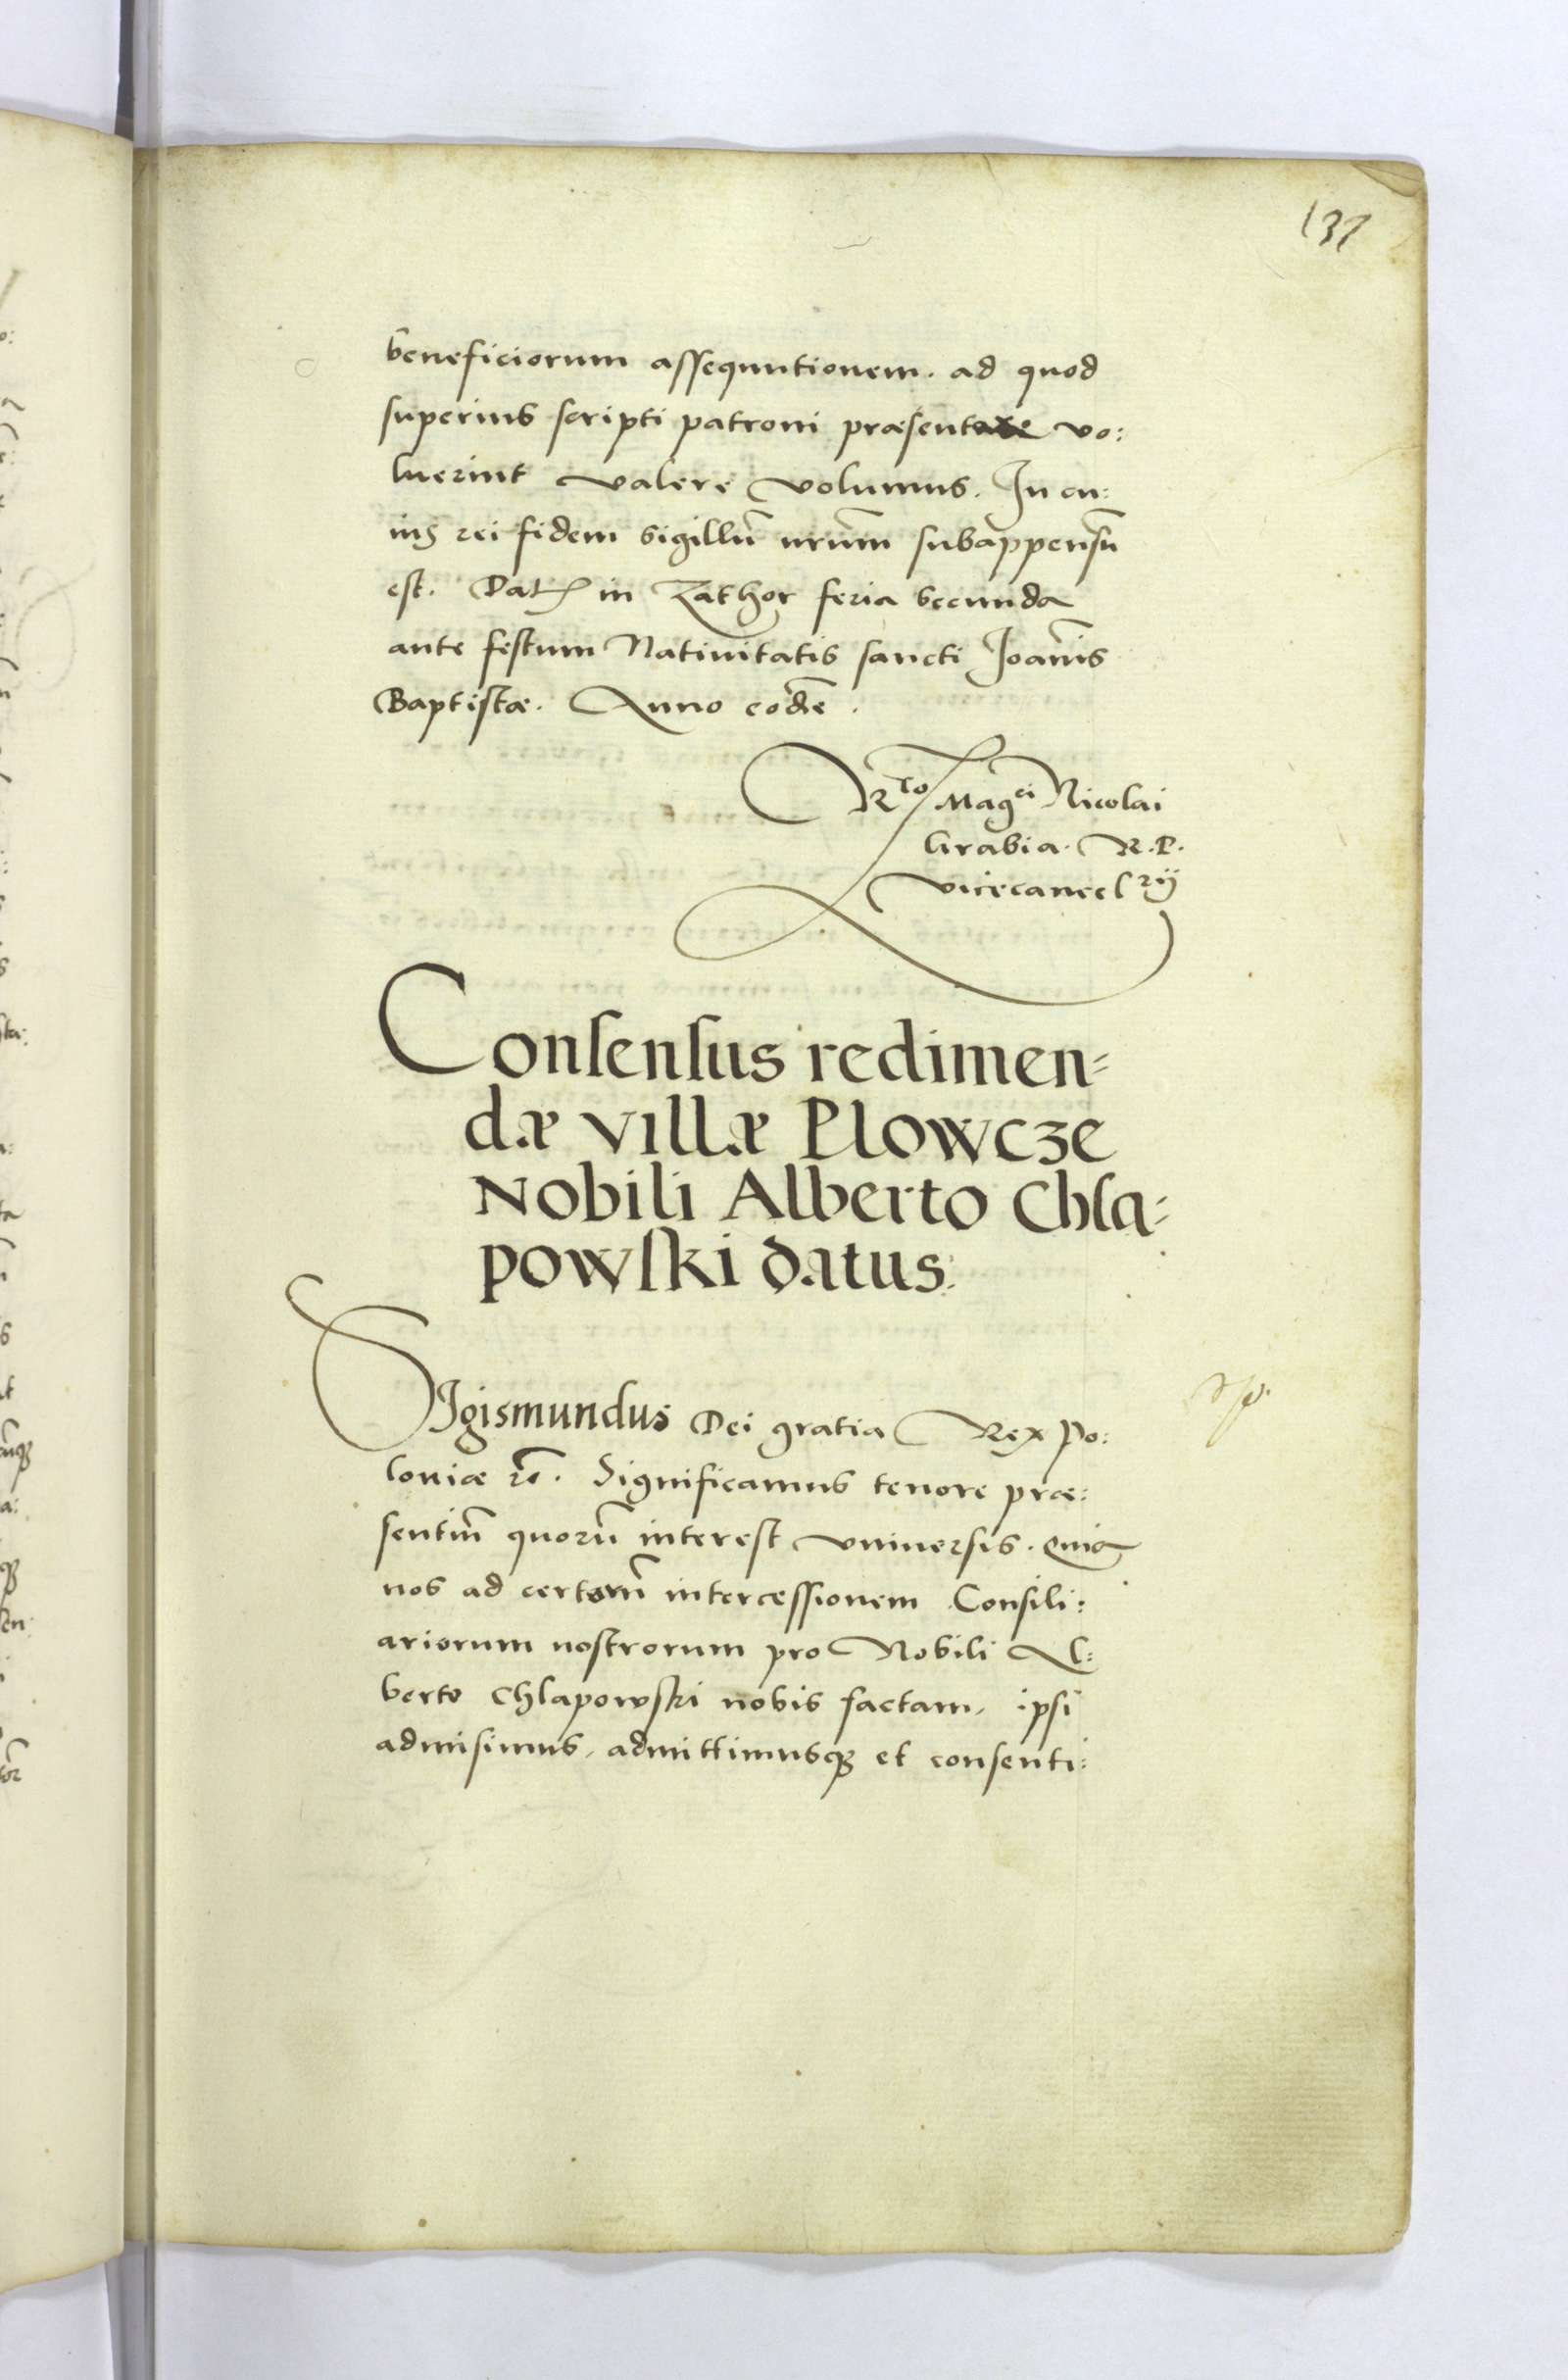 137
beneficiorum assequutionem. ad quod
superius scripti patroni præsentare vo:
luerint valere volumus. In cu:
ius rei fidem sigillũ nrũm subappensũ
est. Dat in Zathor feria secunda
ante festum Natiuitatis sancti Joãnis
Baptistæ. Anno eodẽ.
Rto Magci Nicolai
Grabia. R. P.
vicecancelrij
Consensus redimen=
dæ villæ Plowcze
Nobili Alberto Chla=
powski datus.
Sigismundus Dei gratia Rex Po:
loniæ rc̃. Significamus tenore præ:
sentiũ quorũ interest vniuersis. Quia
nos ad certorũ intercessionem Consili:
ariorum nostrorum pro Nobili Al:
berto Chlapowski nobis factam, ipsi
admisimus, admittimusq; et consenti: